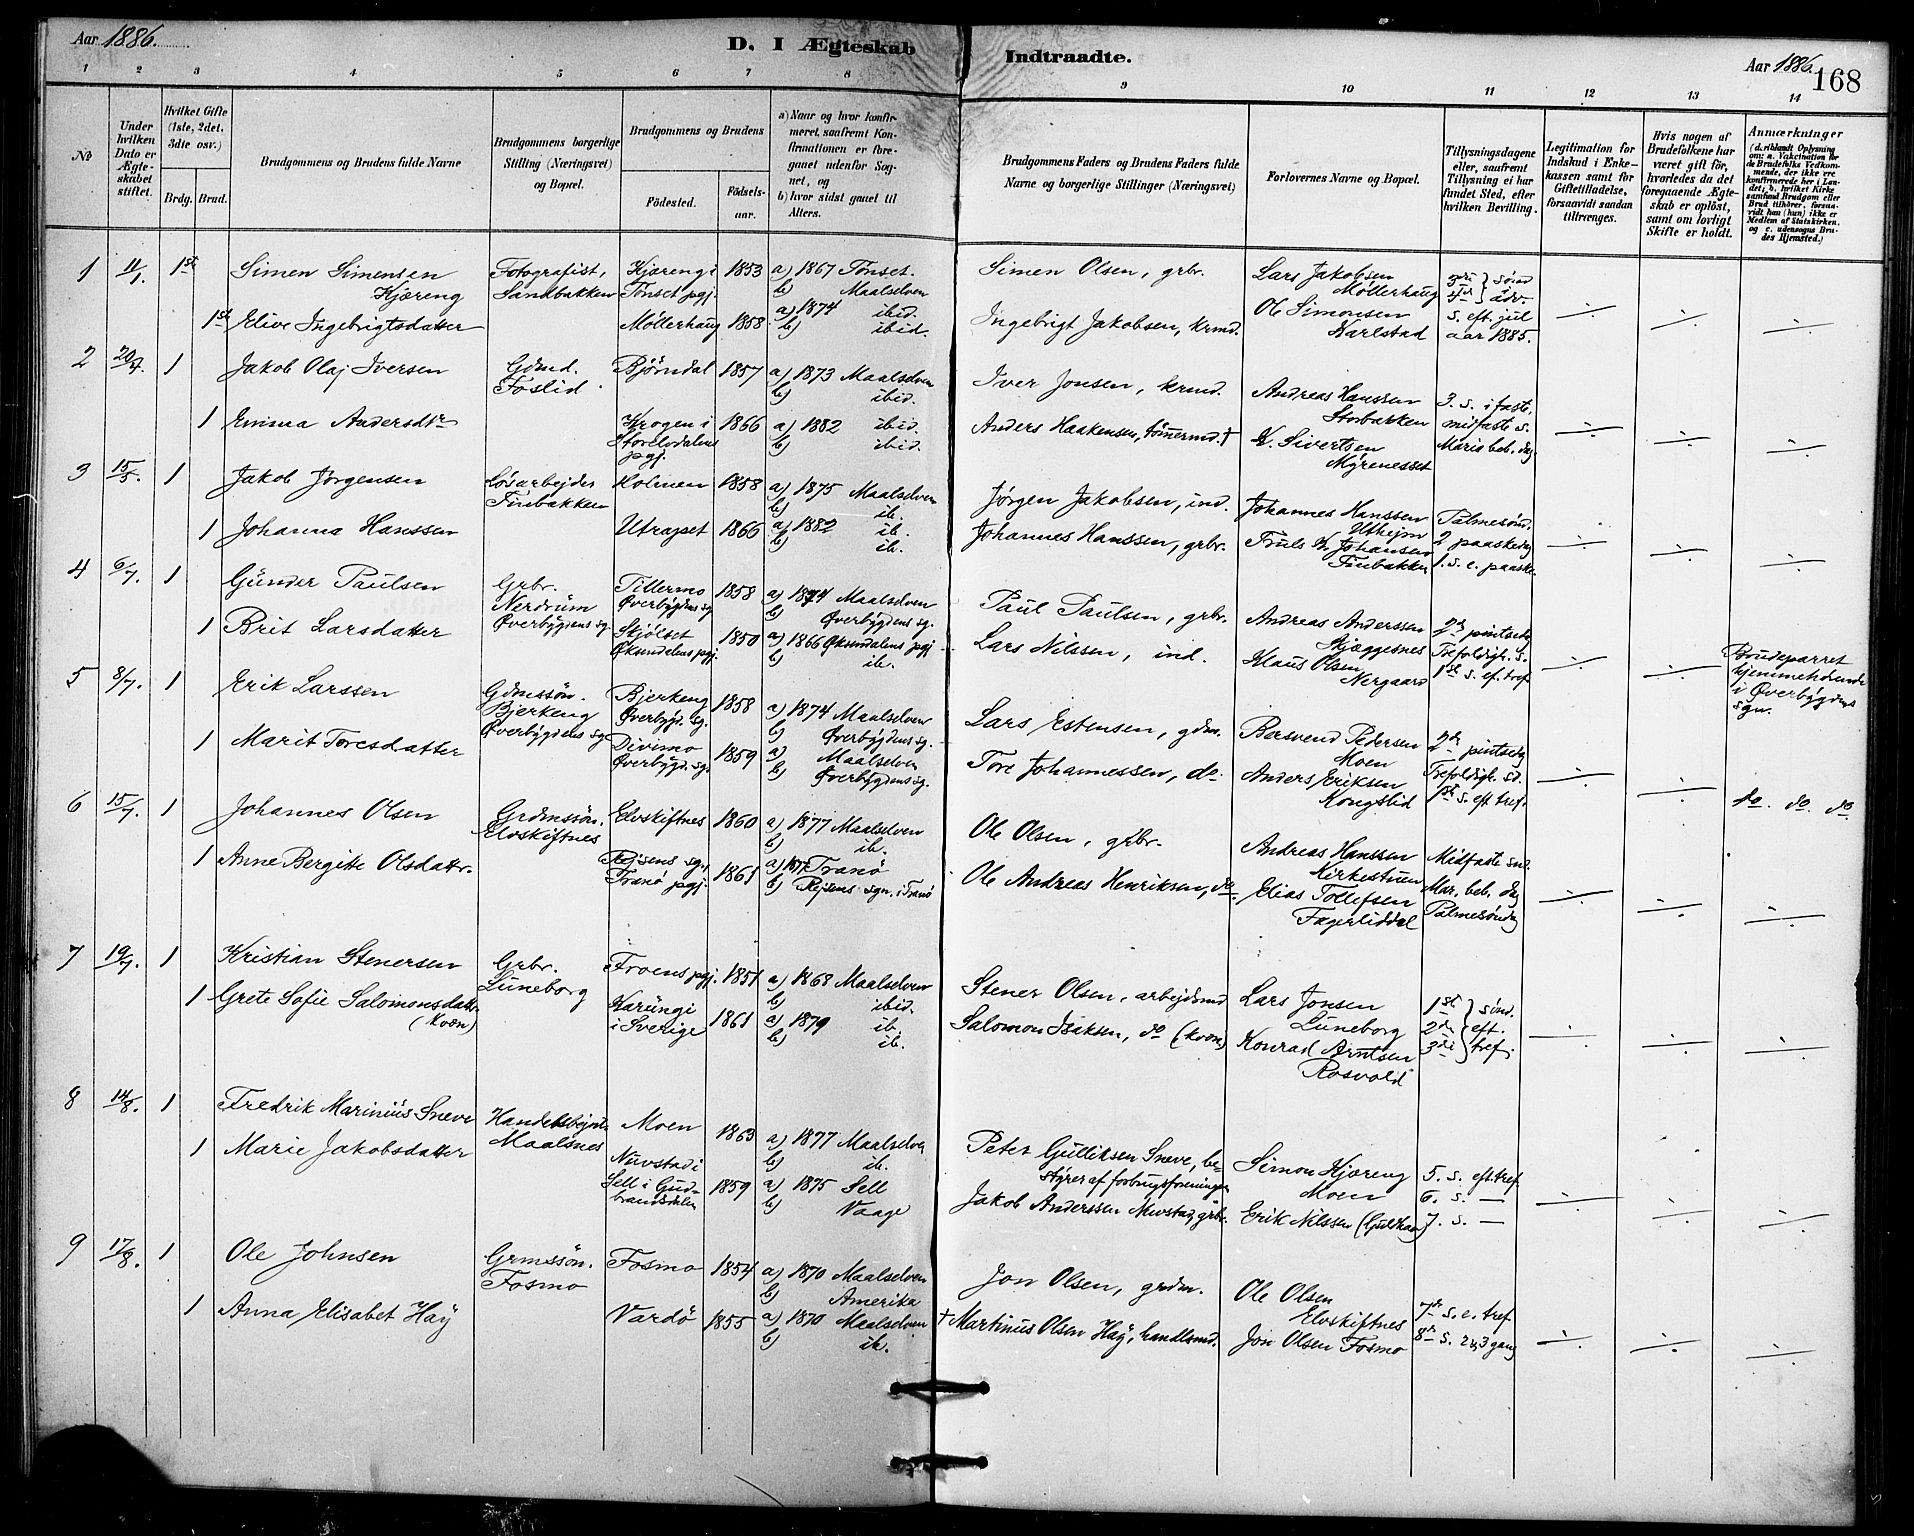 Aar 1886.
D. I Ægteskab Indtraadte.
Aar 1886.
168
1 2 3 4 5 6 7 8 9 10 11 12 13 14
No
Under hvilken Dato er Ægteskabet stiftet.
Hvilket Gifte (1ste, 2det, 3dte osv.)
Brdg. Brud.
Brudgommens og Brudens fulde Navne
Brudgommens borgerlige Stilling (Næringsvei) og Bopæl.
Brudgommens og Brudens
Födested.
Födselsaar.
a) Naar og hvor konfirmeret, saafremt Konfirmationen er foregaaet udenfor Sognet, og
b) hvor sidst gaaet til Alters.
Brudgommens Faders og Brudens Faders fulde Navne og borgerlige Stillinger (Næringsvei)
Forlovernes Navne og Bopæl.
Tillysningsdagene eller, saafremt Tillysning ei har fundet Sted, efter hvilken Bevilling.
Legitimation for Indskud i Enkekassen samt for Giftetilladelse, forsaavidt saadan tiltrænges.
Hvis nogen af Brudefolkene har været gift för, hvorledes da det foregaaende Ægteskab er oplöst, samt om lovligt Skifte er holdt.
Anmærkninger (d. riblandt Oplysning om: a. Vakcination for de Brudefolks Vedkommende, der ikke ere konfirmerede her i Landet; b. hvilket Kirkesamfund Brudgom eller Brud tilhörer, forsaavidt han (hun) ikke er Medlem af Statskirken, og c. udensogns Brudes Hjemsted.)
1 11/1 1ste Simen Simensen Kjæreng Fotografist, Sandbakken Kjærengi Tønset pgj. 1853 a) 1867 Tönset. b) Maalselven Simen Olsen, grbr. Lars Jakobsen Möllerhaug 3die 4de sönd adv.
1ste Elive Ingebrigtsdatter Möllerhaug 1858 a) 1874 ibid. b) ibid. Ingebrigt Jakobsen, krmd. Ole Simonsen Karlstad s. eft. jul aar 1885.
2 20/4 1 Jakob Olaj Iversen Gdmd. Foslid Bjørndal 1857 a) 1873 Maalselven b) ibid. Iver Jonsen, krmd. Andreas Hanssen Storbakken 3. s. i faste.
1 Emma Andersdtr Krogen i Storelvdalens pgj. 1866 a) 1882 ibid. b) ibid. Anders Haakensen, tømermd. † K. Sivertsen Myrenesset midfaste s. Maria beb. dag
3 15/5 1 Jakob Jørgensen Løsarbejder Finbakken Holmen 1858 a) 1875 Maalselven b) ib. Jørgen Jakobsen, ind. Johannes Hanssen Palmesönd.
1 Johanna Hanssen 1866 a) 1882 ib. b) ib. Johannes Hanssen, grbr. Truls Johansen Finbakken 2 paaskedag 1. s. e. paaske
4 6/7 1 Gunder Paulsen Grbr. Nerdrum Øverbygdens sg. Tillermo Øverbygdens sg 1858 a) 1874 Maalselven b) Øverbygdens sg. Paul Paulsen, grbr. Andreas Anderssen Skjæggesnes 2den pintsedag
1 Brit Larsdatter Skjölset Øksendalens pgj. 1850 a) 1866 Øksendalens pgj b) ib. Lars Nilssen, ind. Klaus Olsen Nergaard Trefoldigh. s. 1ste s. ef. tref
Brudeparret hjemmehørende i Øverbygdens sgn.
5 8/7 1 Erik Larssen Gdmssön. Bjerkeng Øverbygdens sg Bjerkeng Øverbygd. sg. 1858 a) 1874 Maalselven b) Øverbygdens sg. Lars Estensen, gdm. Bersvend Pedersen Moen 2den pintsedg
1 Marit Toresdatter Divimo Øverbygd. sg. 1859 a) Maalselven b) Øverbygdens sg. Tore Johannessen, do. Anders Eriksen Kongslid Trefoldigh. sd. 1ste s. eft tref.
do. do. do
6 15/7 1 Johannes Olsen Grdmssön. Elvskiftnes Elvskiftnes 1860 a) 1877 Maalselven b) ib. Ole Olsen, grbr. Andreas Hanssen Kirkestuen Midfaste snd.
1 Anne Bergitte Olsdattr. Rejsens sg., Tranø pgj. 1861 a) 1877 Tranö b) Rejsens sgn. i Tranö Ole Andreas Henriksen, do. Elias Tollefsen Fagerliddal Mar. beb. dag Palmesöndag
7 19/7 1 Kristian Stenersen Grbr. Luneborg Froens pgj. 1851 a) 1868 Maalselven b) ibid. Stener Olsen, arbejdsmd Lars Jonsen Luneborg 1ste 2den 3die sönd. eft. tref.
1 Grete Sofie Salomonsdatter (Kvæn) Karungi i Sverige 1861 a) 1879 ib. b) ib. Salomon Isaksen, do (kvæn) Konrad Arntsen Rosvold
8 14/8 1 Fredrik Marinius Sneve Handelsbejent Maalsnes Moen 1863 a) 1877 Maalselven b) ib. Peter Gulliksen Sneve, bestyrer af forbrugsforeningen Simon Kjæreng Moen 5. s. eft. tref
1 Marie Jakobsdatter Nuvstad i Sell i Gudbrandsdalen 1859 a) 1875 Sell b) Vaage Jakob Anderssen Nuvstad, grbr. Erik Nilssen (Gulhav) 6. s. — 7. s. —
9 17/8 1 Ole Johnsen Grmssön. Fosmo Fosmo 1854 a) 1870 Maalselven b) Amerika Jon Olsen, grdm. Ole Olsen Elvskiftnes 7de s. e. tref
1 Anna Elisabet Høy Vardö 1855 a) 1870 Maalselven b) ib. † Martinus Olsen Høy, handlsmd. Jon Olsen Fosmo 8de s. 2 og 3 gang